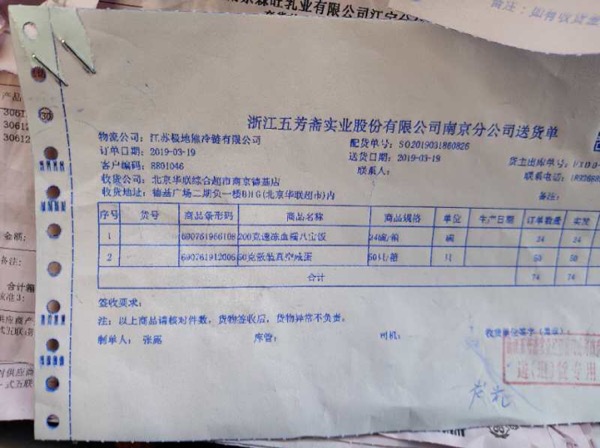 乳业有限公司江宁分公司
浙江五芳斋实业股份有限公司南京分公司送货单
物流公司：江苏极地熊冷链有限公司
配货单号：SO2019031860826
订单日期：2019-03-19
送货日期：2019-03-19
货主出库单号：
客户编码：8801046
联系人：
联系电话：
收货公司：北京华联综合超市南京德基店
收货地址：德基广场二期负一楼BHG(北京华联超市)内
备注：
序号 货号 商品条形码 商品名称 商品规格 单位 生产日期 订单数量 实发
1 690761966108 200克速冻血糯八宝饭 24碗/箱 碗 24 24
2 690761912006 60克散装真空咸蛋 50 50
合计 74 74
签收要求：
注：以上商品请核对件数，货物签收后，货物异常不负责。
制单人：张麗 库管： 司机： 收货单位签字(盖章)：
产品
30612
30612
金额：
备注：
合计箱